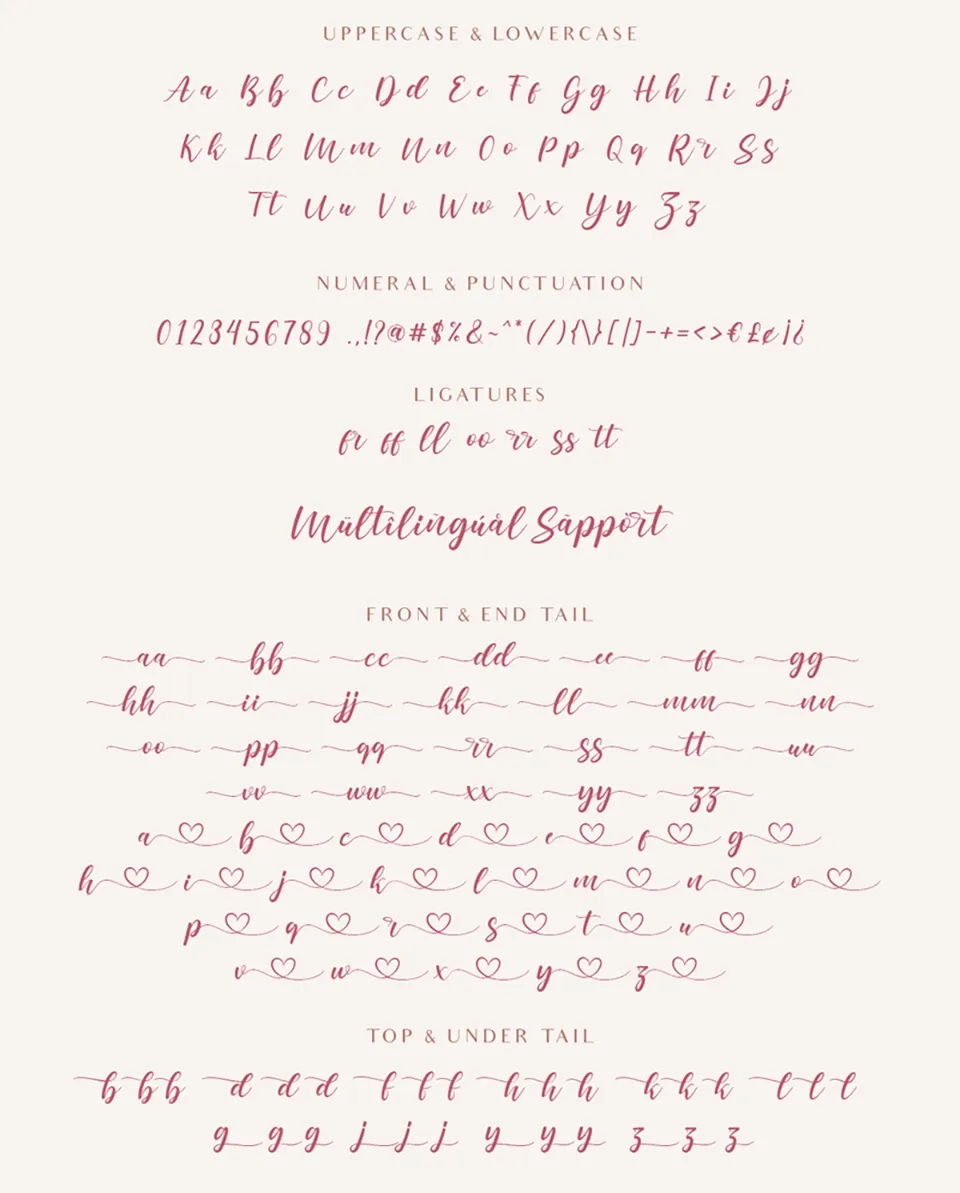 UPPERCASE & LOWERCASE
Aa Bb Cc Dd Ee Ff Gg Hh Ii Jj
Kk Ll Mm Nn Oo Pp Qq Rr Ss
Tt Uu Vv Ww Xx Yy Zz
NUMERAL & PUNCTUATION
0123456789 .,!?@#$%&~^*(/){\}[|]-+=<>€£¢¡¿
LIGATURES
fr ff ll oo rr ss tt
Mültîlingúàl Sãppört
FRONT & END TAIL
aa bb cc dd ee ff gg
hh ii jj kk ll mm nn
oo pp qq rr ss tt uu
vv ww xx yy zz
a b c d e f g
h i j k l m n o
p q r s t u
v w x y z
TOP & UNDER TAIL
b b b d d d f f f h h h k k k l l l
g g g j j j y y y z z z